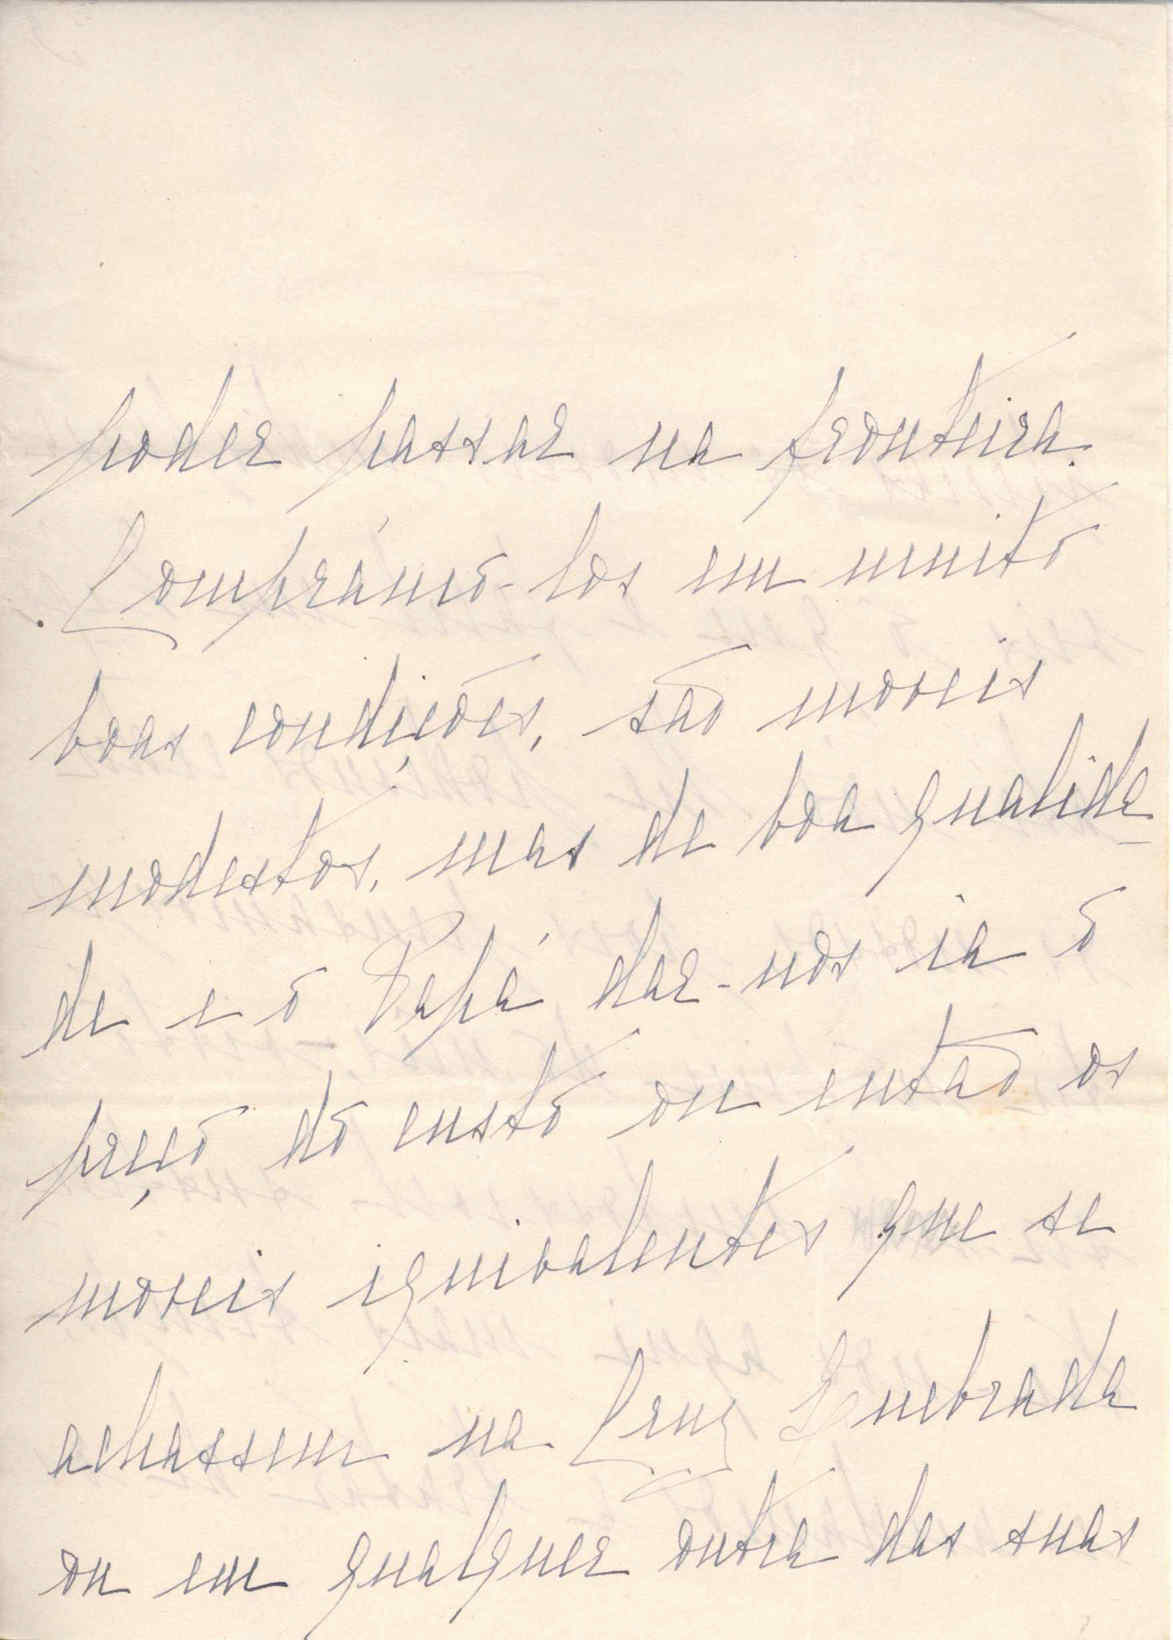 poder passar na fronteira.
Comprámo-los em muito
boas condições, são moveis
modestos, mas de boa qualida_
de e o Papá dar-nos ia o
preço do custo ou então os
moveis iquivalentes que se
achassem na Cruz Quebrada
ou em qualquer outra das suas